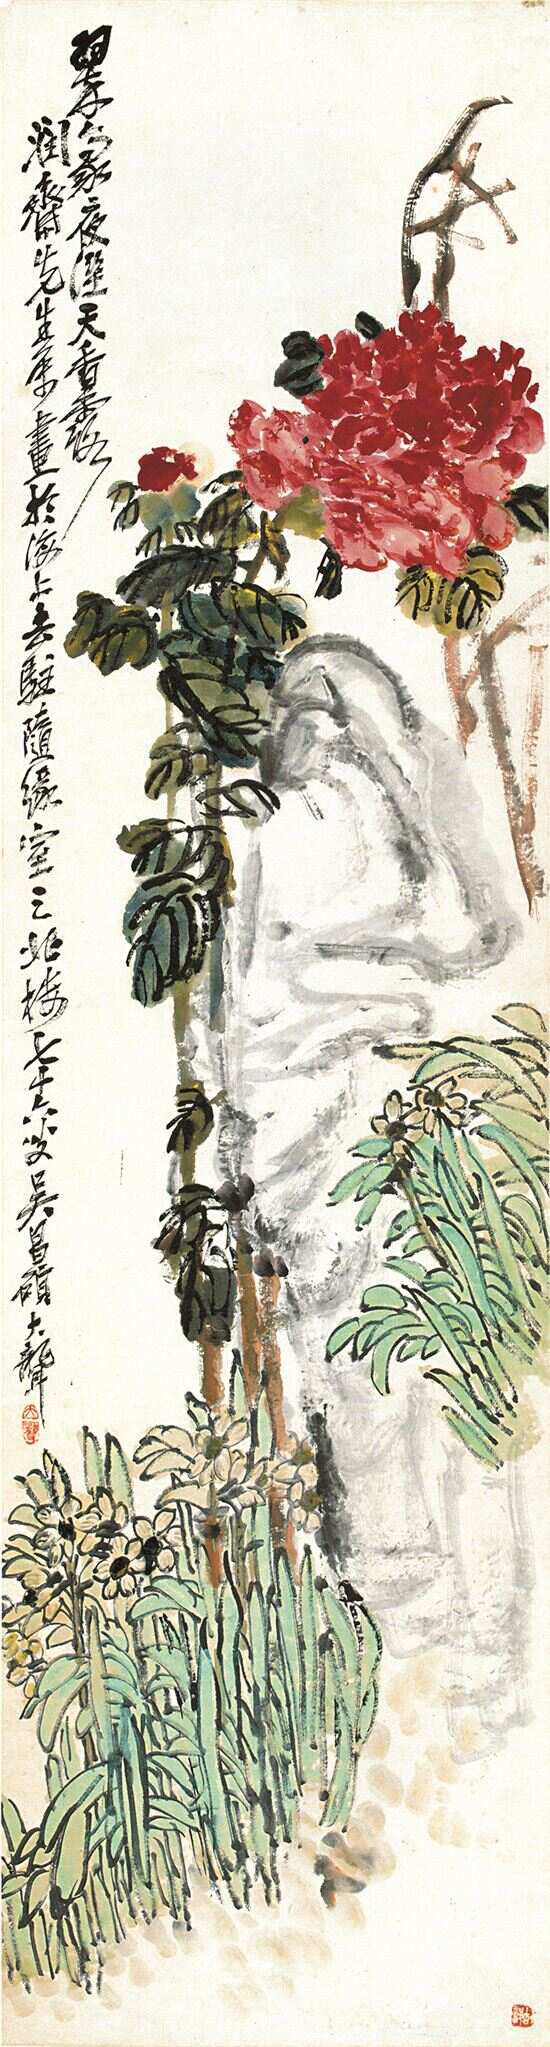 翠袖夜溼天香露
潤齋先生屬畫於海上去駐隨緣室之北樓七十六叟吳昌碩大聾